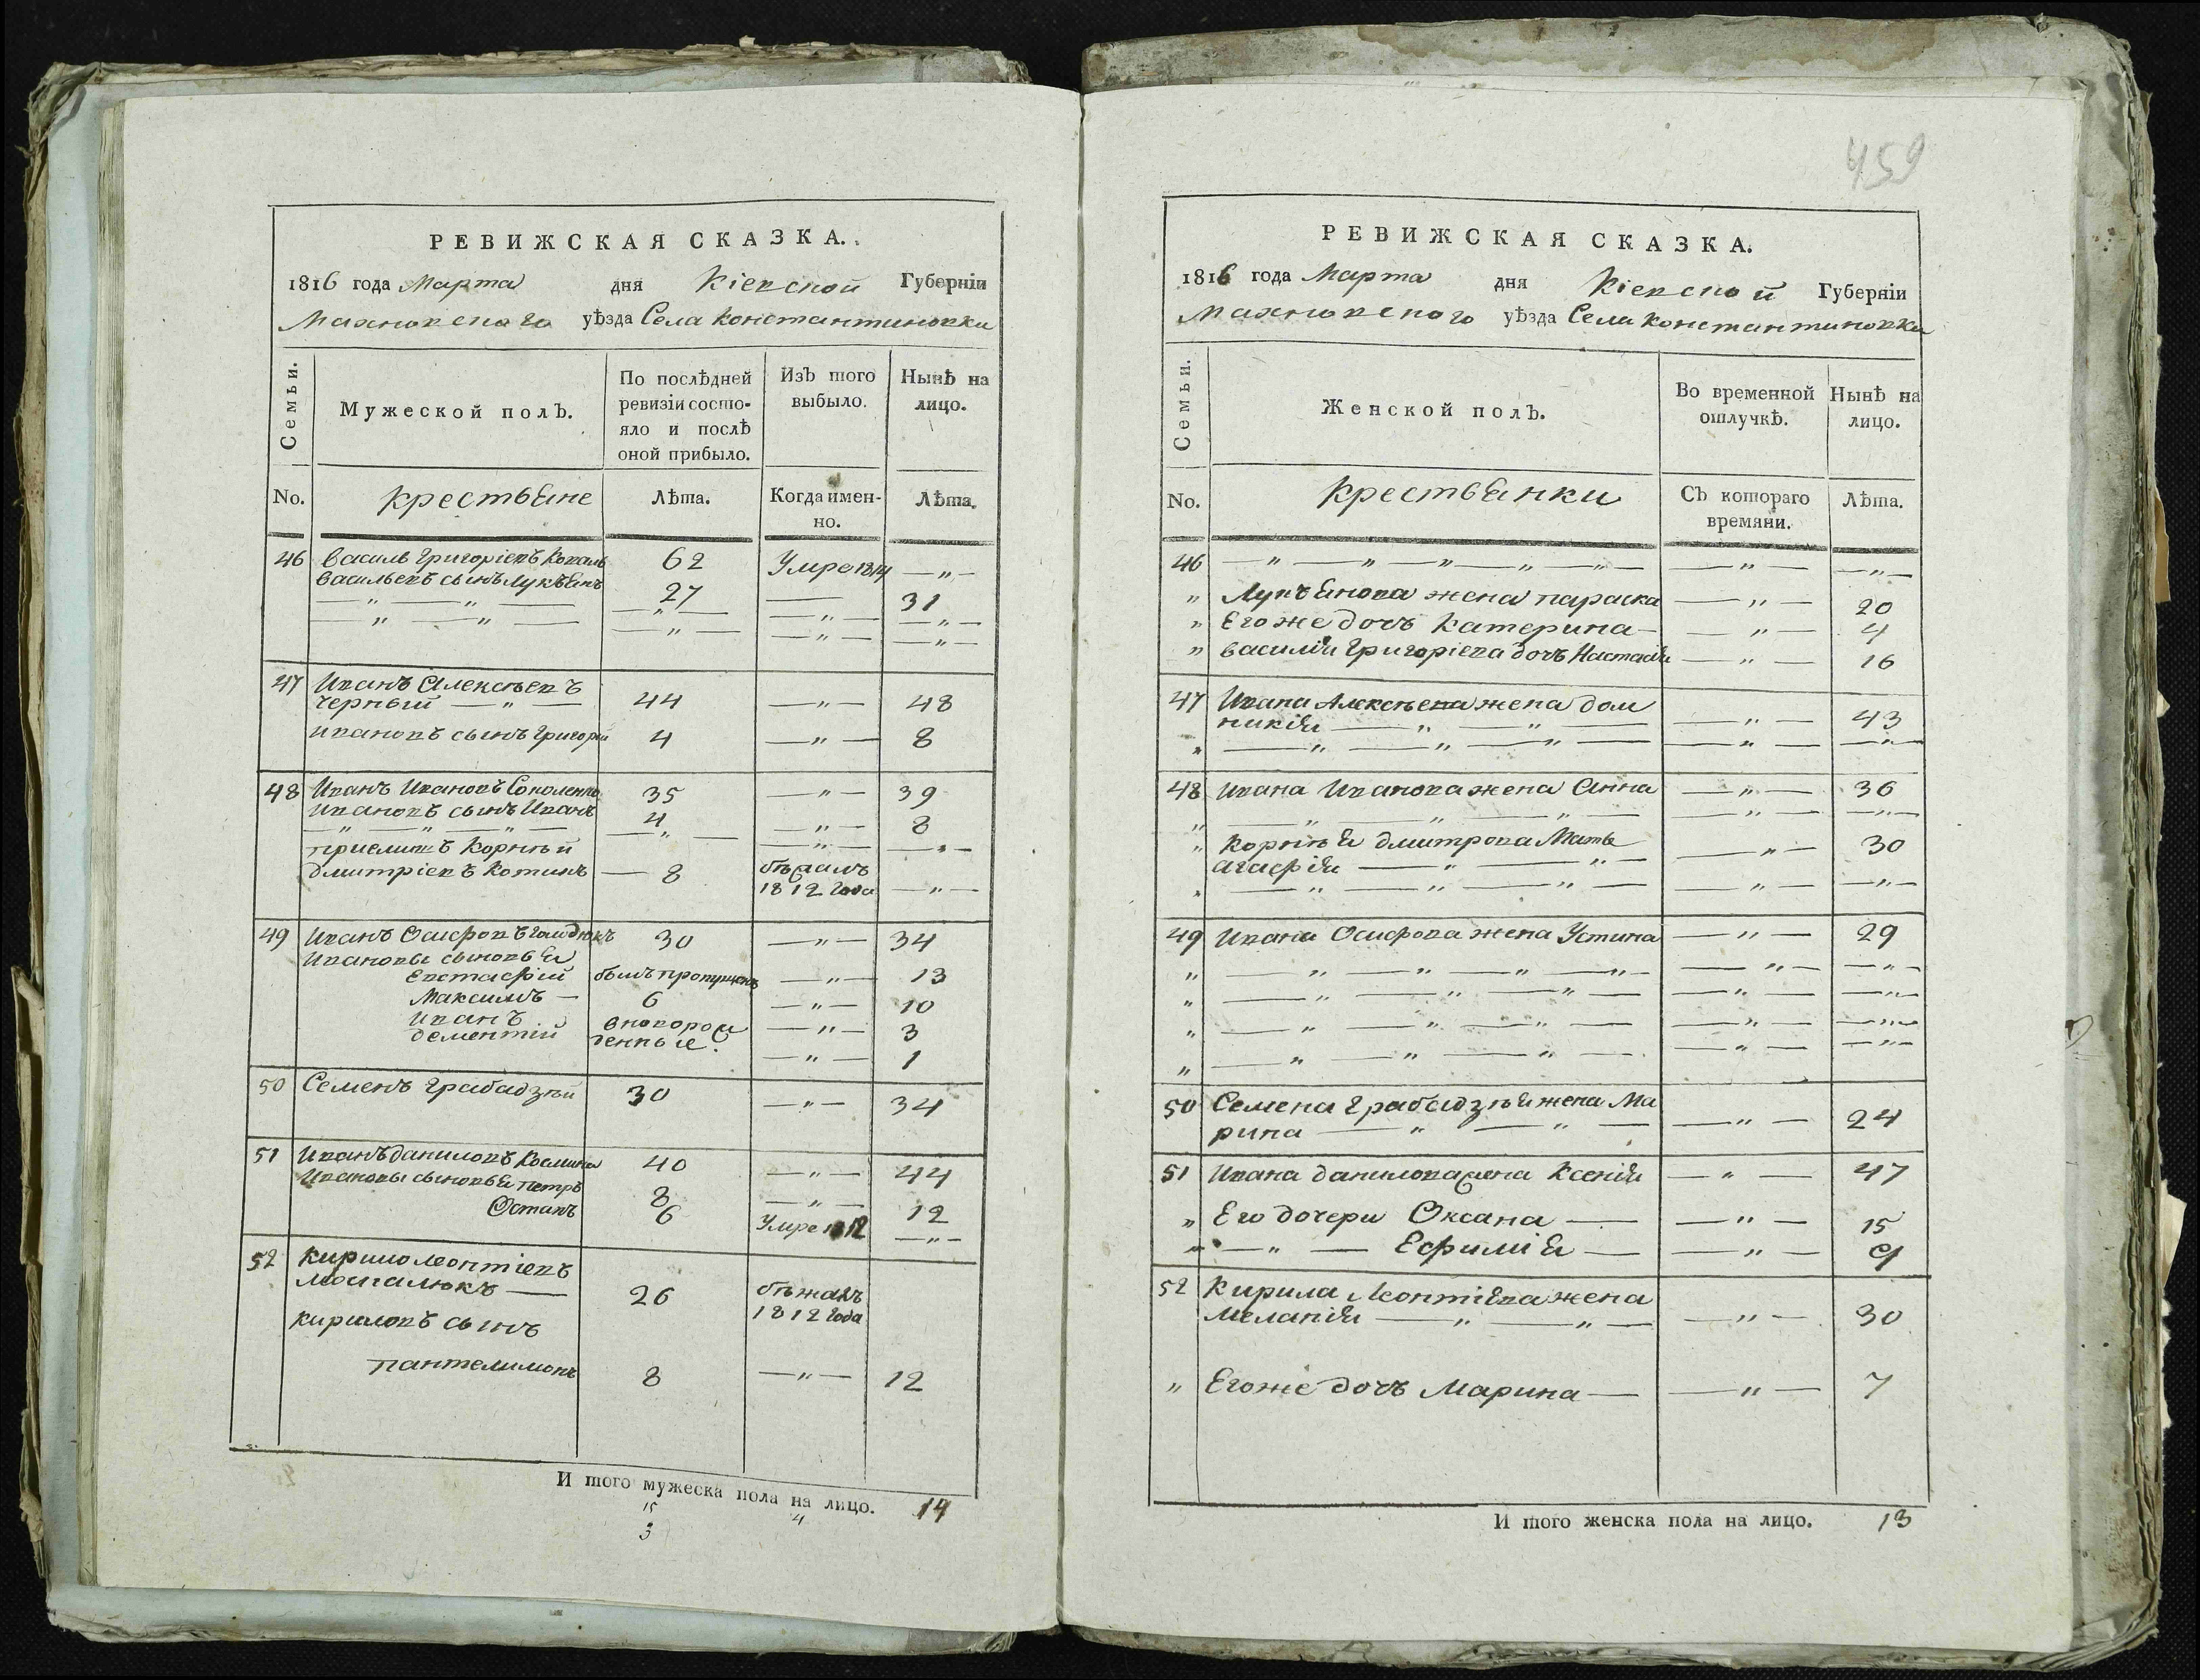 РЕВИЖСКАЯ СКАЗКА.
1816 года Марта дня Кіевской Губерніи
Махновского уѣзда Села Константиновки
Семьи.
Мужеской полЪ.
По послѣдней ревизіи состо-
яло и послѣ
оной прибыло.
ИзЪ того
выбыло.
Нынѣ на
лицо.
No.
крестьяне
Лѣта.
Когда имен-
но.
Лѣта.
46 Василь Григоріевъ Коваль 62 Умре 1814 — „ —
Васильевъ сынъ Лукъянъ 27 — 31
— „ — „ — — „ — — „ — — „ —
— „ — „ — — „ — — „ — — „ —
47 Иванъ Алексѣевъ
Черный — „ — 44 — „ — 48
Ивановъ сынъ Григорій 4 — „ — 8
48 Иванъ Ивановъ 35 — „ — 39
Ивановъ сынъ Иванъ 4 — „ — 8
— „ — „ — „ — — „ — — „ —
Корнѣй — „ —
Дмитріевъ Котикъ — 8 бѣжалъ
1812 года — „ —
49 Иванъ Осифовъ Гайдюкъ 30 — „ — 34
Ивановы сыновья
Евстафій былъ пропущенъ — „ — 13
Максимъ — 6 — „ — 10
Иванъ вноворож — „ — 3
Дементій денные — „ — 1
50 Семенъ Грабадзѣй 30 — „ — 34
51 Иванъ Даниловъ 40 — „ — 44
Ивановы сыновья Петръ 8 — „ — 12
Остапъ 6 Умре 1812 — „ —
52 Кирило Леонтіевъ
Москалюкъ — 26 бѣжалъ
1812 года
Кириловъ сынъ
Пантелимонъ 8 — „ — 12
И того мужеска пола на лицо. 14
15 4
3
459
РЕВИЖСКАЯ СКАЗКА.
1816 года Марта дня Кіевской Губерніи
Махновского уѣзда Села Константиновки
Семьи.
Женской полЪ.
Во временной
отлучкѣ.
Нынѣ на
лицо.
No.
крестьянки
СЪ котораго
времяни.
Лѣта.
46 — „ — „ — „ — „ — „ — — „ — — „ —
„ Лукъянова жена Параска — „ — 20
„ Его же дочъ Катерина — — „ — 4
„ Василія Григоріева дочъ Настасія — „ — 16
47 Ивана Алексѣева жена Дом
никія — „ — „ — — „ — 43
„ — „ — „ — „ — — „ — — „ —
48 Ивана Иванова жена Анна — „ — 36
„ — „ — „ — „ — — „ — — „ —
„ Корнѣя Дмитрова Мать
Агафія — „ — — „ — 30
„ — „ — „ — „ — — „ — — „ —
49 Ивана Осифова жена Устина — „ — 29
„ — „ — „ — „ — „ — — „ — — „ —
„ — „ — „ — „ — — „ — — „ —
„ — „ — „ — „ — — „ — — „ —
„ — „ — „ — „ — — „ — — „ —
50 Семена Грабадзѣя жена Ма
рина — „ — „ — — „ — 24
51 Ивана Данилова жена Ксенія — „ — 47
„ Его дочери Оксана — — „ — 15
„ — „ — Ефимія — — „ — 9
52 Кирила Леонтіява жена
Меланія — „ — „ — — „ — 30
„ Егоже дочъ Марина — — „ — 7
И того женска пола на лицо. 13